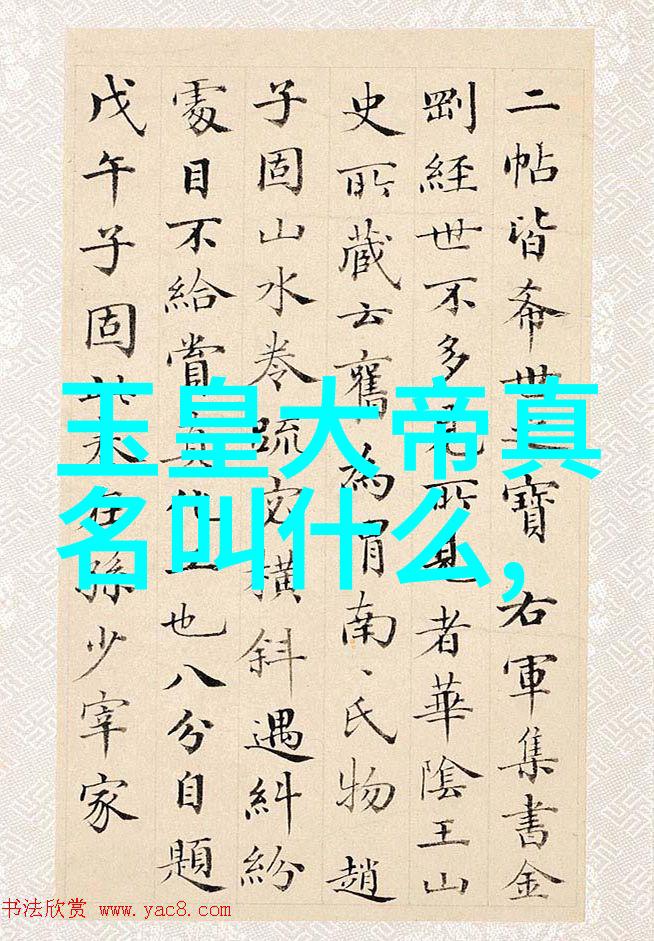 二帖皆希世之寶右軍集書金
剛經世不多見所見者華陰王山
史所藏云舊為渭南、氏物趙
子固山水卷疏密橫斜遇糾紛
處目不給賞真他也八分自題
戊午子固此卷在孫少宰家
玉皇大帝真
名叫什么,
书法欣赏 www.yac8.com